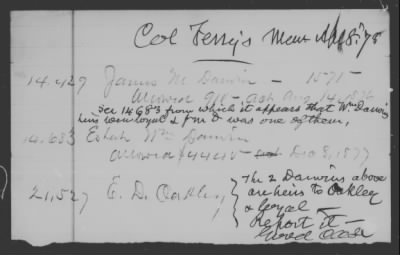 Col Ferry's Mem Apl 8, '78
14.429 James M. Darwin — 1575—
Allowed 910— Act Aug 14, 1876
See 14683 from which it appears that Wm Darwin
heirs were loyal & J M D was one of them,
14.683 Estate Wm Darwin
Allowed $4440— Dec 8, 1877
21,527 E. D. Oakley
The 2 Darwins above
are heirs to Oakley
& loyal —
Report it —